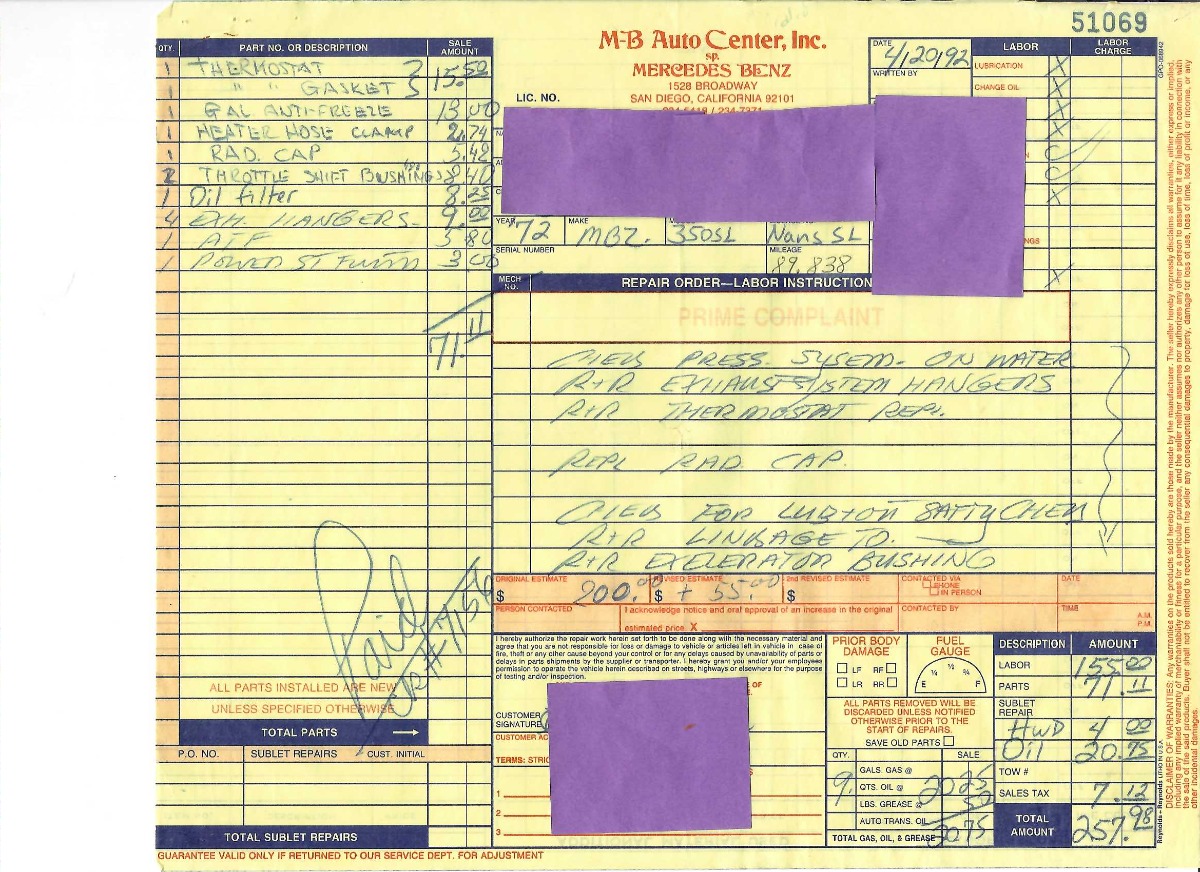 51069
M-B Auto Center, Inc.
sp.
MERCEDES BENZ
1528 BROADWAY
SAN DIEGO, CALIFORNIA 92101
LIC. NO.
DATE 4/20/92
WRITTEN BY
LABOR LABOR CHARGE
LUBRICATION X
CHANGE OIL X
QTY. PART NO. OR DESCRIPTION SALE AMOUNT
1 THERMOSTAT
1 " " GASKET 15.50
1 GAL ANTI-FREEZE 13 00
1 HEATER HOSE CLAMP 2.74
1 RAD. CAP 5.42
2 THROTTLE SHIFT BUSHINGS 8.40
1 Oil filter 8.25
4 EXH. HANGERS 9.00
1 ATF 5 80
1 POWER ST FLUID 3 00
71.11
YEAR '72 MAKE MBZ. 350SL Nans SL
SERIAL NUMBER MILEAGE 89,838
MECH NO. REPAIR ORDER—LABOR INSTRUCTION
PRIME COMPLAINT
CHECK PRESS. SYSEM- ON WATER
R+R EXHAUST SYSTEM HANGERS
R+R THERMOSTAT REPL.
REPL RAD CAP.
CHECK FOR LUB+OIL SAFTY CHECK
R+R LINKAGE TO.
R+R EXELERATOR BUSHING
ORIGINAL ESTIMATE $ 200.00 REVISED ESTIMATE $ + 55.00 2nd REVISED ESTIMATE $ CONTACTED VIA PHONE IN PERSON DATE
PERSON CONTACTED I acknowledge notice and oral approval of an increase in the original estimated price. X CONTACTED BY TIME A.M. P.M.
Paid
I hereby authorize the repair work herein set forth to be done along with the necessary material and
agree that you are not responsible for loss or damage to vehicle or articles left in vehicle in case of
fire, theft or any other cause beyond your control or for any delays caused by unavailability of parts or
delays in parts shipments by the supplier or transporter. I hereby grant you and/or your employees
permission to operate the vehicle herein described on streets, highways or elsewhere for the purpose
of testing and/or inspection.
CUSTOMER SIGNATURE
CUSTOMER AC
TERMS: STRIC
1
2
3
ALL PARTS INSTALLED ARE NEW
UNLESS SPECIFIED OTHERWISE
TOTAL PARTS
P.O. NO. SUBLET REPAIRS CUST. INITIAL
TOTAL SUBLET REPAIRS
GUARANTEE VALID ONLY IF RETURNED TO OUR SERVICE DEPT. FOR ADJUSTMENT
PRIOR BODY DAMAGE
LF RF
LR RR
FUEL GAUGE
E 1/4 1/2 3/4 F
ALL PARTS REMOVED WILL BE
DISCARDED UNLESS NOTIFIED
OTHERWISE PRIOR TO THE
START OF REPAIRS.
SAVE OLD PARTS
QTY. SALE
GALS. GAS @
9 QTS. OIL @ 20 25
LBS. GREASE @ 50
AUTO TRANS. OIL
TOTAL GAS, OIL, & GREASE 20 75
DESCRIPTION AMOUNT
LABOR 155 00
PARTS 71.11
SUBLET REPAIR
HWD 4 00
Oil 20.75
TOW #
SALES TAX 7.12
TOTAL AMOUNT 257.98
Reynolds + Reynolds LITHO IN U.S.A.
DISCLAIMER OF WARRANTIES: Any warranties on the products sold hereby are those made by the manufacturer. The seller hereby expressly disclaims all warranties, either express or implied,
including any implied warranty of merchantability or fitness for a particular purpose, and the seller neither assumes nor authorizes any other person to assume for it any liability in connection with
the sale of the said products. Buyer shall not be entitled to recover from the seller any consequential damages, damages to property, damage for loss of use, loss of time, loss of profit or income, or any
other incidental damages.